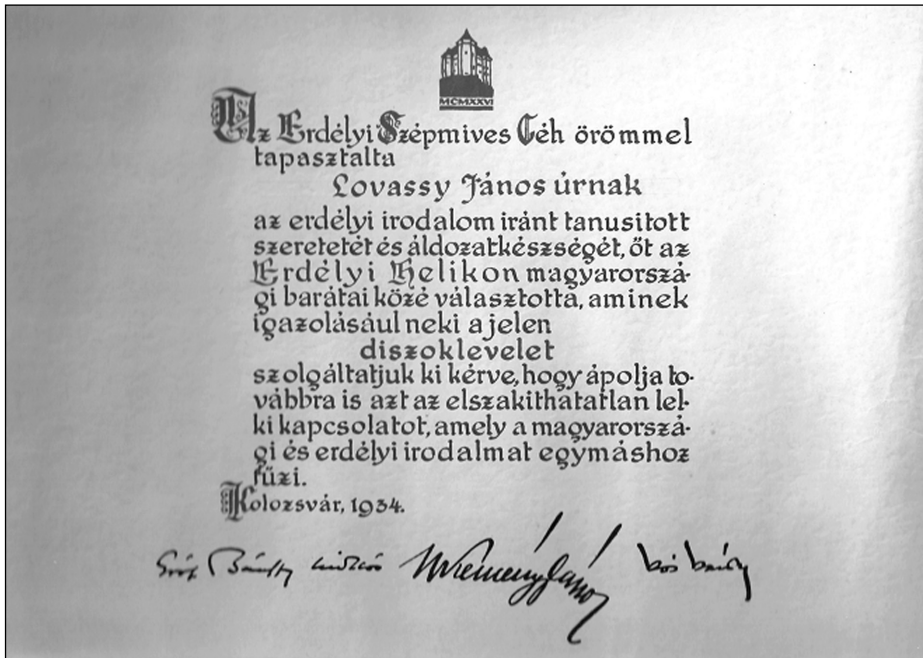 MCMXXVI
Az Erdélyi Szépmives Céh örömmel
tapasztalta
Lovassy János úrnak
az erdélyi irodalom iránt tanusitott
szeretetét és áldozatkészségét, őt az
Erdélyi Helikon magyarorszá-
gi barátai közé választotta, aminek
igazolásául neki a jelen
diszoklevelet
szolgáltatjuk ki kérve, hogy ápolja to-
vábbra is azt az elszakithatatlan lel-
ki kapcsolatot, amely a magyarorszá-
gi és erdélyi irodalmat egymáshoz
fűzi.
Kolozsvár, 1934.
Gróf Bánffy Miklós Kemény János Kós Károly